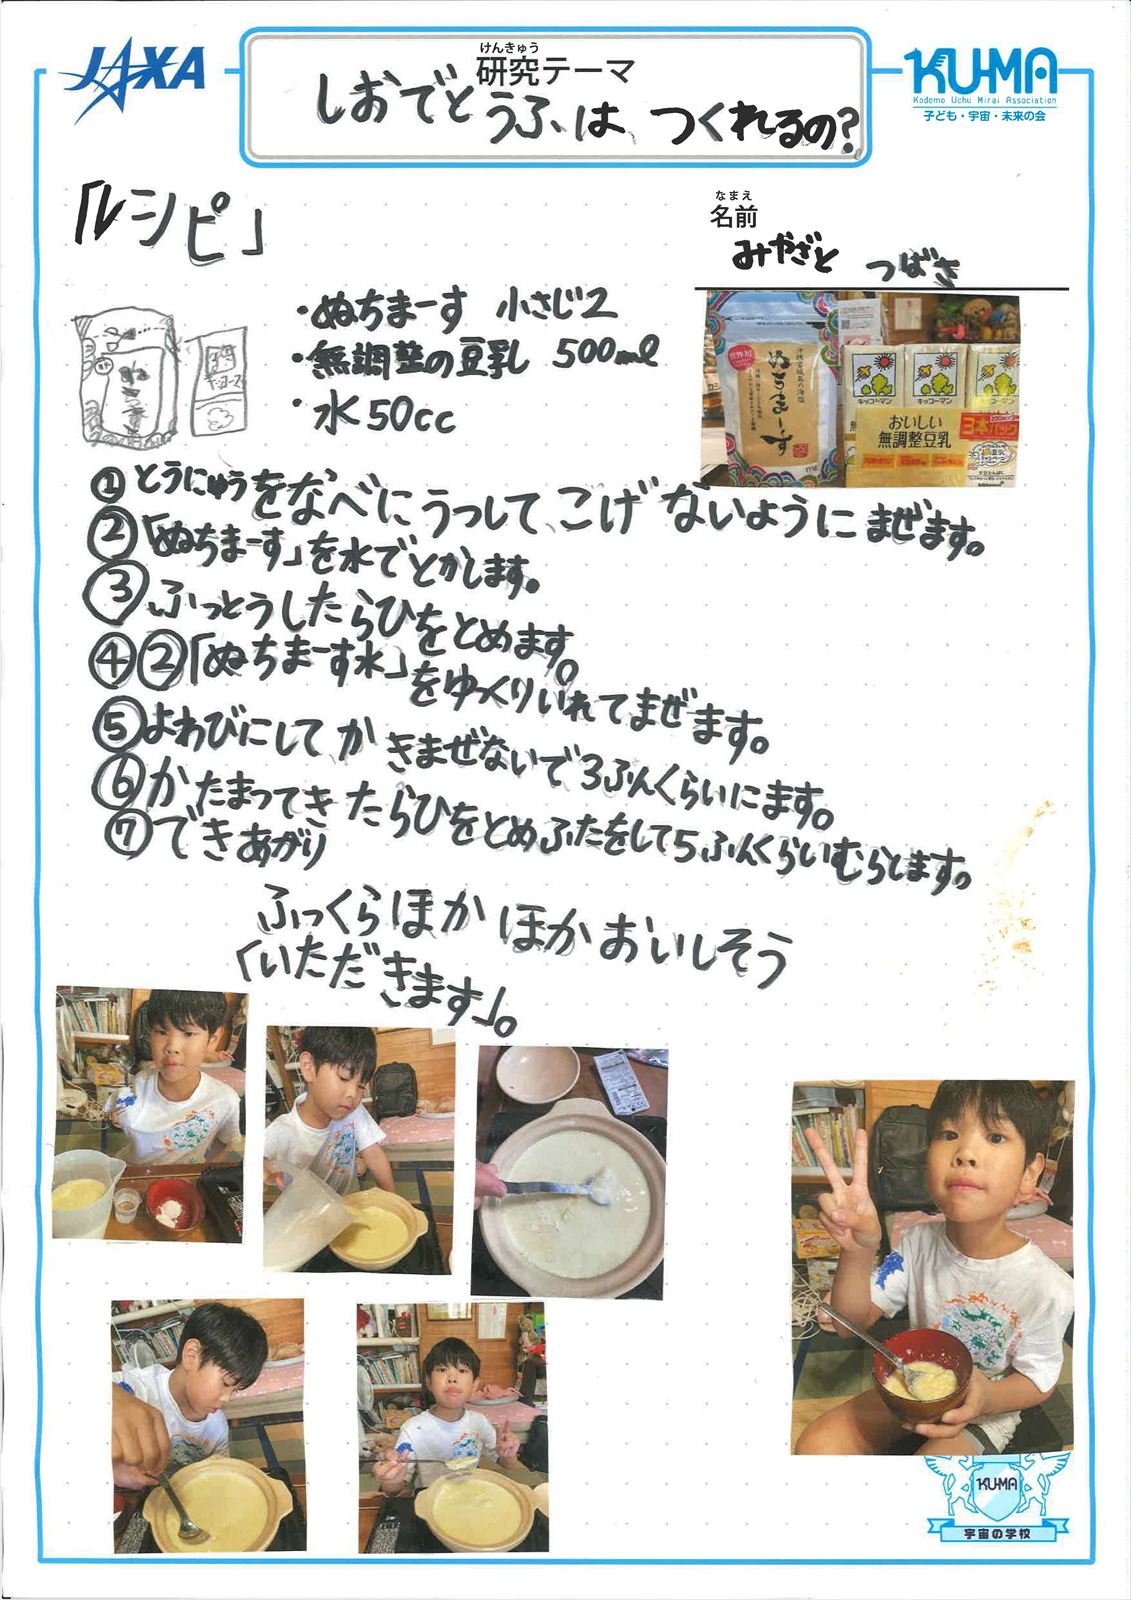 JAXA
けんきゅう
研究テーマ
KU-MA
Kodomo Uchu Mirai Association
子ども・宇宙・未来の会
しおでとうふは、つくれるの?
「レシピ」
なまえ
名前
みやざと つばさ
・ぬちまーす 小さじ2
・無調整の豆乳 500ml
・水50cc
ぬちまーす
キッコーマン
キッコーマン
キッコーマン
おいしい
無調整豆乳
3本パック
①とうにゅうをなべにうつして、こげないようにまぜます。
②「ぬちまーす」を水でとかします。
③ふっとうしたらひをとめます。
④②「ぬちまーす水」をゆっくりいれてまぜます。
⑤よわびにしてかきまぜないで3ぷんくらいにます。
⑥かたまってきたらひをとめふたをして5ふんくらいむらします。
⑦できあがり
ふっくらほかほかおいしそう
「いただきます」。
KU-MA
宇宙の学校